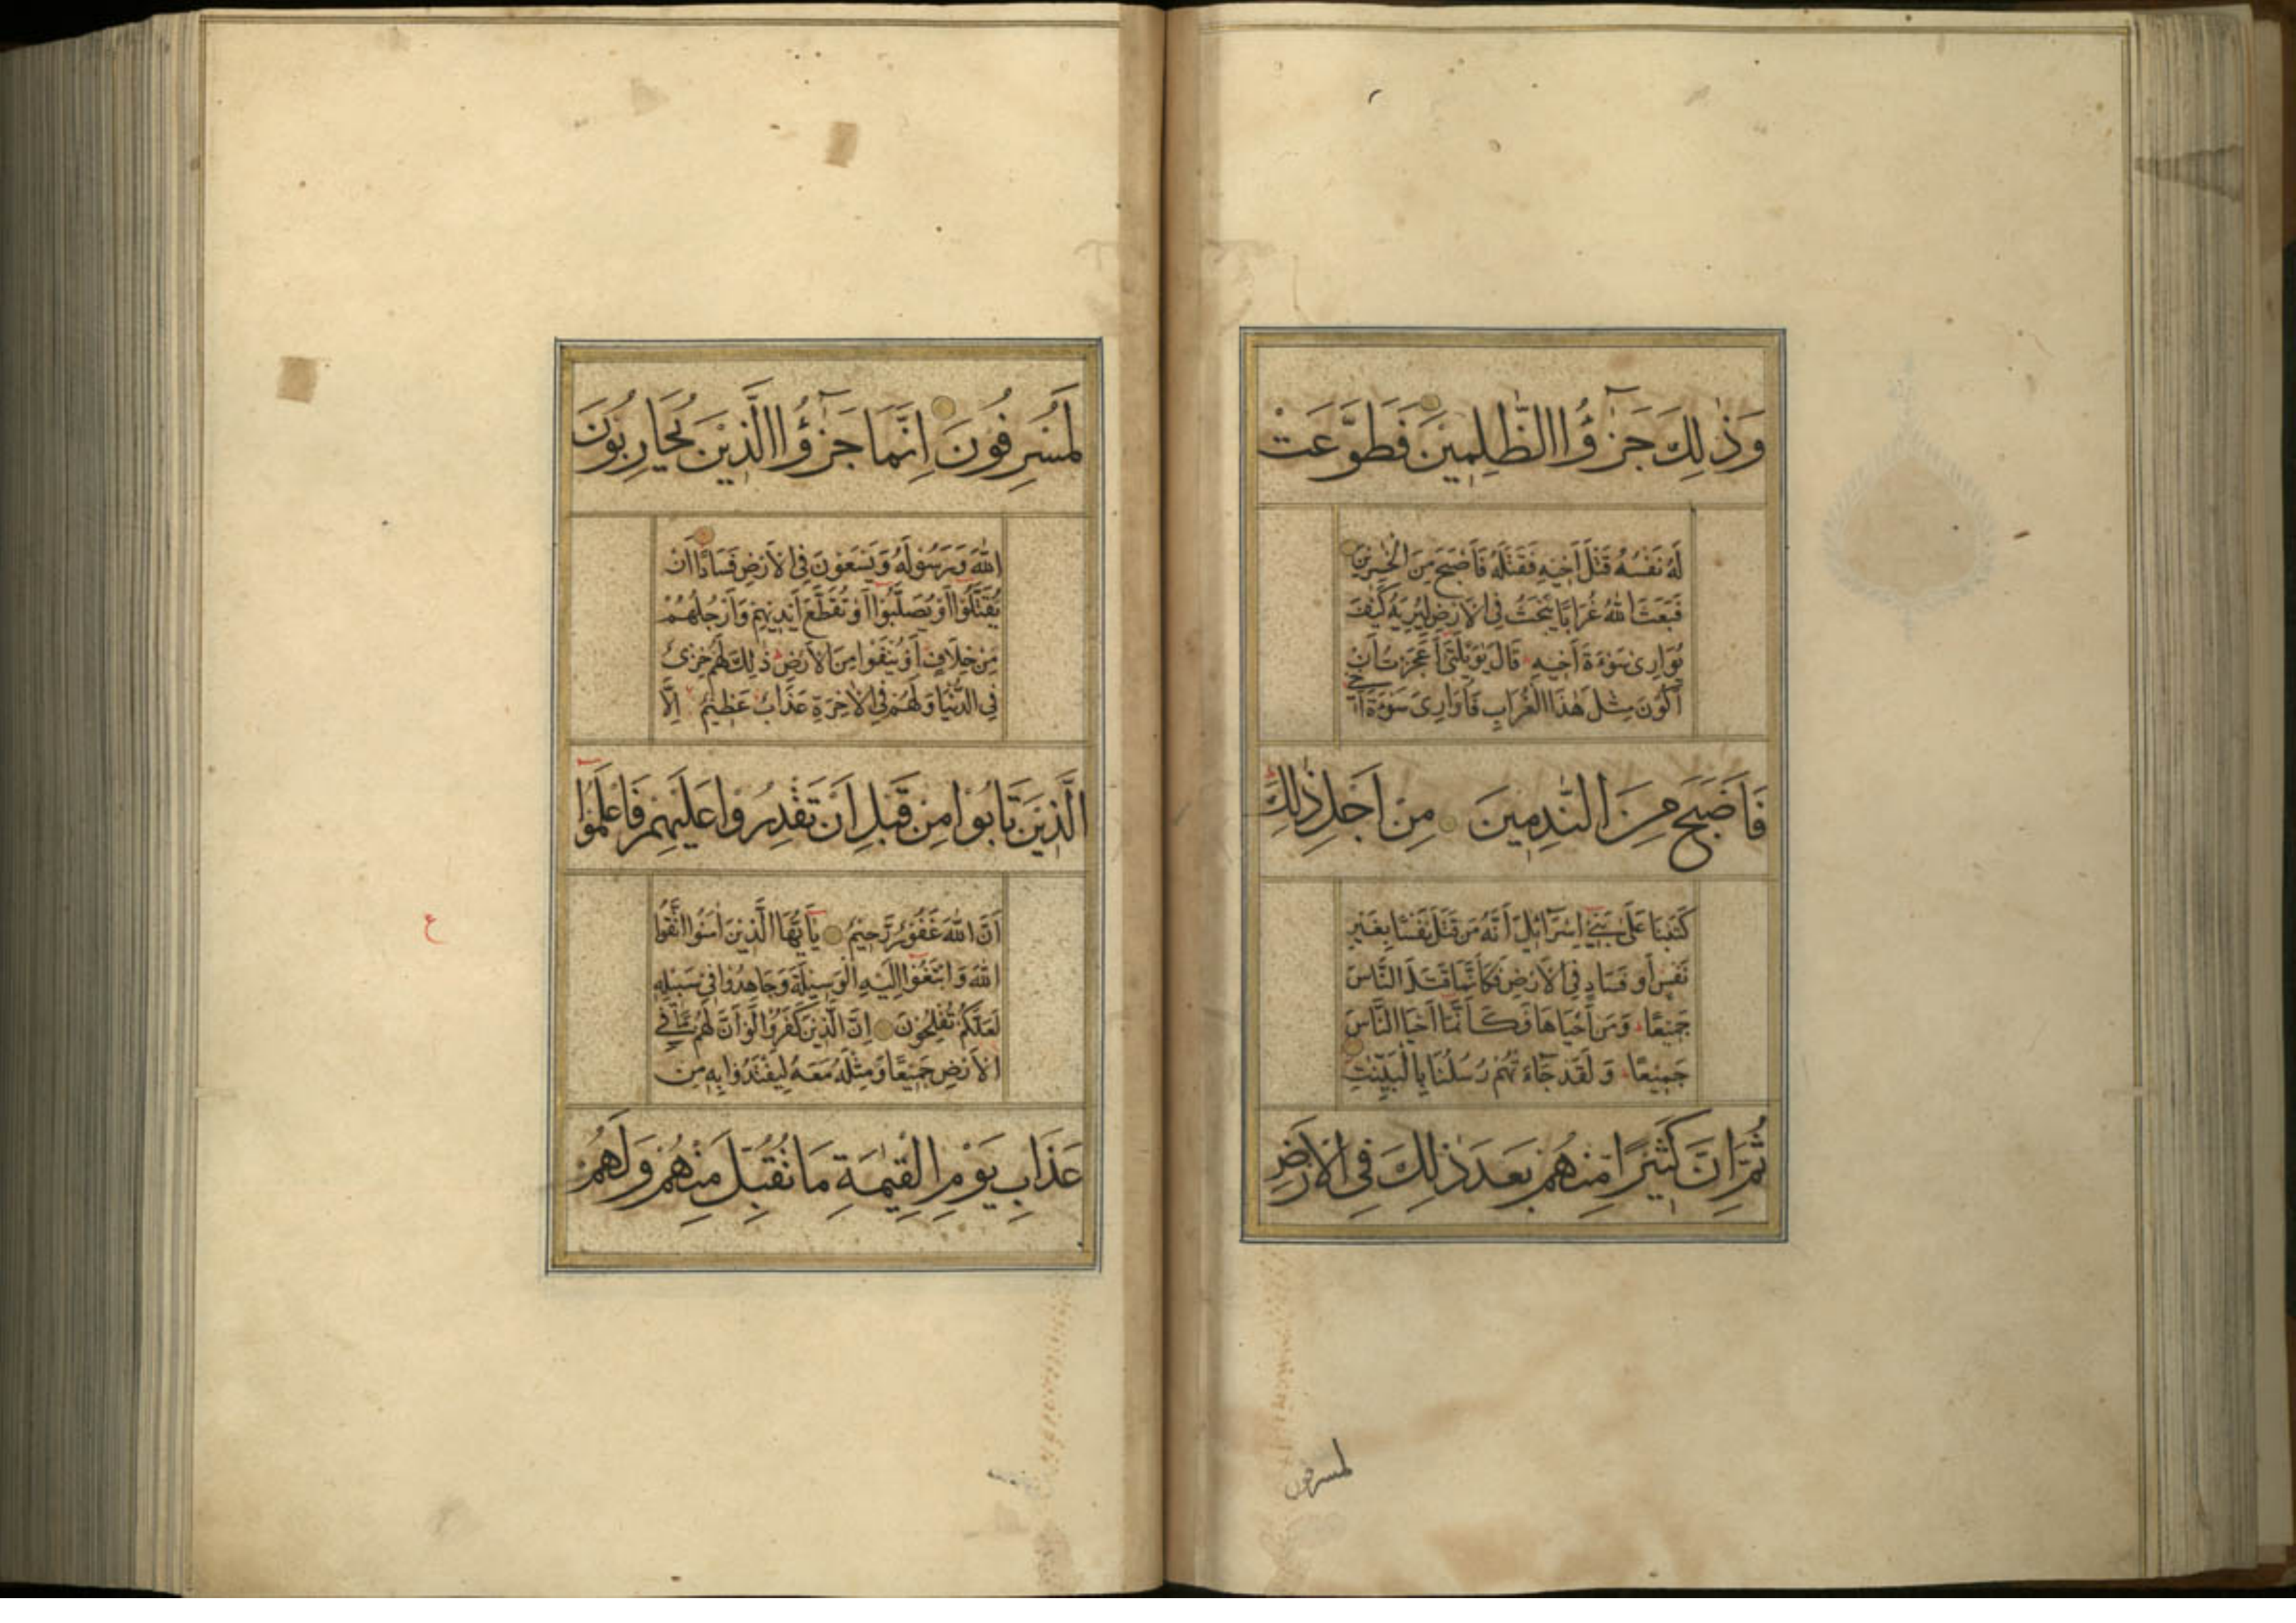 وَذٰلِكَ جَزٰٓؤُا الظّٰلِمِيْنَ فَطَوَّعَتْ
لَهُ نَفْسُهُ قَتْلَ اَخِيْهِ فَقَتَلَهُ فَاَصْبَحَ مِنَ الْخٰسِرِيْنَ
فَبَعَثَ اللّٰهُ غُرَابًا يَبْحَثُ فِى الْاَرْضِ لِيُرِيَهُ كَيْفَ
يُوَارِى سَوْءَةَ اَخِيهِ قَالَ يٰوَيْلَتٰٓى اَعَجَزْتُ اَنْ
اَكُوْنَ مِثْلَ هٰذَا الْغُرَابِ فَاُوَارِىَ سَوْءَةَ اَخِى
فَاَصْبَحَ مِنَ النّٰدِمِيْنَ مِنْ اَجْلِ ذٰلِكَ
كَتَبْنَا عَلٰى بَنِىٓ اِسْرَآئِيْلَ اَنَّهُ مَنْ قَتَلَ نَفْسًا بِغَيْرِ
نَفْسٍ اَوْ فَسَادٍ فِى الْاَرْضِ فَكَاَنَّمَا قَتَلَ النَّاسَ
جَمِيْعًا وَمَنْ اَحْيَاهَا فَكَاَنَّمَآ اَحْيَا النَّاسَ
جَمِيْعًا وَلَقَدْ جَآءَتْهُمْ رُسُلُنَا بِالْبَيِّنٰتِ
ثُمَّ اِنَّ كَثِيْرًا مِّنْهُمْ بَعْدَ ذٰلِكَ فِى الْاَرْضِ
لمسرفون
لَمُسْرِفُوْنَ اِنَّمَا جَزٰٓؤُا الَّذِيْنَ يُحَارِبُوْنَ
اللّٰهَ وَرَسُوْلَهُ وَيَسْعَوْنَ فِى الْاَرْضِ فَسَادًا اَنْ
يُقَتَّلُوْٓا اَوْ يُصَلَّبُوْٓا اَوْ تُقَطَّعَ اَيْدِيْهِمْ وَاَرْجُلُهُمْ
مِنْ خِلَافٍ اَوْ يُنْفَوْا مِنَ الْاَرْضِ ذٰلِكَ لَهُمْ خِزْىٌ
فِى الدُّنْيَا وَلَهُمْ فِى الْاٰخِرَةِ عَذَابٌ عَظِيْمٌ اِلَّا
الَّذِيْنَ تَابُوْا مِنْ قَبْلِ اَنْ تَقْدِرُوْا عَلَيْهِمْ فَاعْلَمُوْٓا
اَنَّ اللّٰهَ غَفُوْرٌ رَّحِيْمٌ يٰٓاَيُّهَا الَّذِيْنَ اٰمَنُوا اتَّقُوا
اللّٰهَ وَابْتَغُوْٓا اِلَيْهِ الْوَسِيْلَةَ وَجَاهِدُوْا فِىْ سَبِيْلِهِ
لَعَلَّكُمْ تُفْلِحُوْنَ اِنَّ الَّذِيْنَ كَفَرُوْا لَوْ اَنَّ لَهُمْ مَّا فِى
الْاَرْضِ جَمِيْعًا وَّمِثْلَهُ مَعَهُ لِيَفْتَدُوْا بِهِ مِنْ
عَذَابِ يَوْمِ الْقِيٰمَةِ مَا تُقُبِّلَ مِنْهُمْ وَلَهُمْ
ع